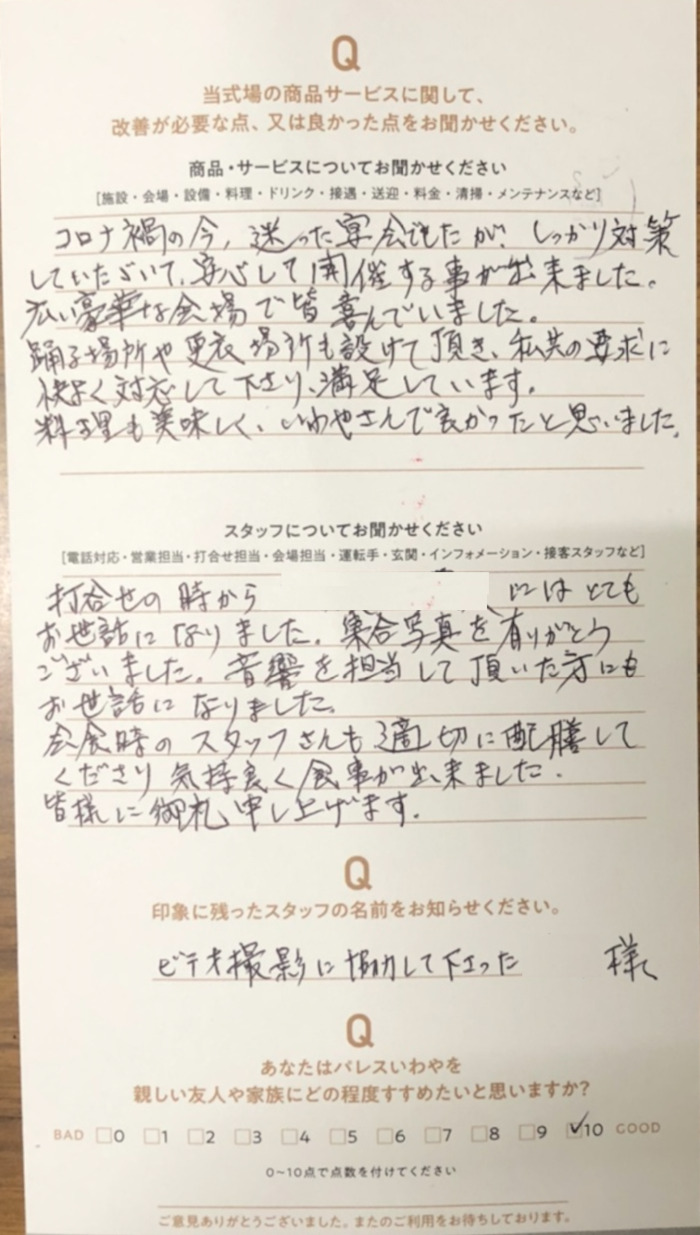 Q
当式場の商品サービスに関して、
改善が必要な点、又は良かった点をお聞かせください。
商品・サービスについてお聞かせください
[施設・会場・設備・料理・ドリンク・接遇・送迎・料金・清掃・メンテナンスなど]
コロナ禍の今、迷った宴会でしたが、しっかり対策
していただいて、安心して開催する事が出来ました。
広い豪華な会場で皆喜んでいました。
踊る場所や更衣場所も設けて頂き、私共の要求に
快よく対応して下さり、満足しています。
料理も美味しく、いわやさんで良かったと思いました。
スタッフについてお聞かせください
[電話対応・営業担当・打合せ担当・会場担当・運転手・玄関・インフォメーション・接客スタッフなど]
打合せの時から にはとても
お世話になりました。集合写真を有りがとう
ございました。音響を担当して頂いた方にも
お世話になりました。
会食時のスタッフさんも適切に配膳して
くださり気持良く食事が出来ました。
皆様に御礼申し上げます。
Q
印象に残ったスタッフの名前をお知らせください。
ビデオ撮影に協力して下さった 様
Q
あなたはパレスいわやを
親しい友人や家族にどの程度すすめたいと思いますか?
BAD 0 1 2 3 4 5 6 7 8 9 10 GOOD
0~10点で点数を付けてください
ご意見ありがとうございました。またのご利用をお待ちしております。